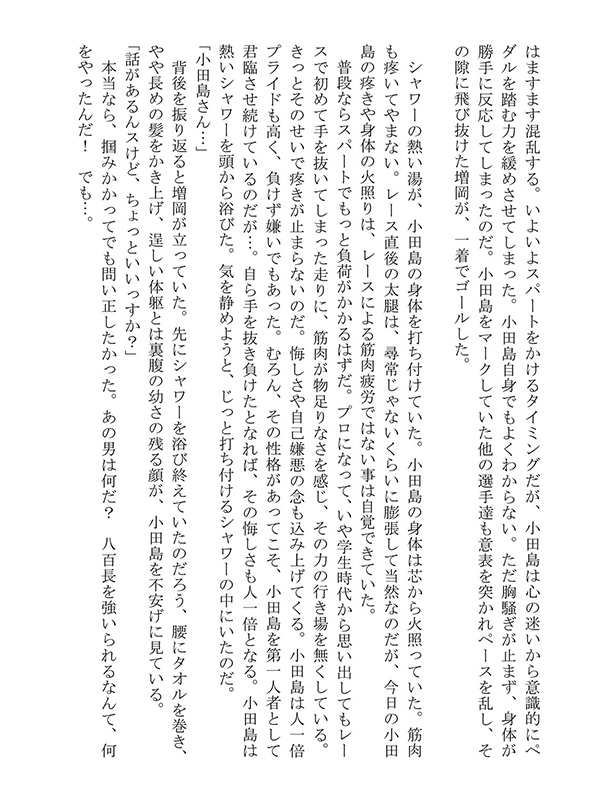 はますます混乱する。いよいよスパートをかけるタイミングだが、小田島は心の迷いから意識的にペ
ダルを踏む力を緩めさせてしまった。小田島自身でもよくわからない。ただ胸騒ぎが止まず、身体が
勝手に反応してしまったのだ。小田島をマークしていた他の選手達も意表を突かれペースを乱し、そ
の隙に飛び抜けた増岡が、一着でゴールした。
シャワーの熱い湯が、小田島の身体を打ち付けていた。小田島の身体は芯から火照っていた。筋肉
も疼いてやまない。レース直後の太腿は、尋常じゃないくらいに膨張して当然なのだが、今日の小田
島の疼きや身体の火照りは、レースによる筋肉疲労ではない事は自覚できていた。
普段ならスパートでもっと負荷がかかるはずだ。プロになって、いや学生時代から思い出してもレー
スで初めて手を抜いてしまった走りに、筋肉が物足りなさを感じ、その力の行き場を無くしている。
きっとそのせいで疼きが止まらないのだ。悔しさや自己嫌悪の念も込み上げてくる。小田島は人一倍
プライドも高く、負けず嫌いでもあった。むろん、その性格があってこそ、小田島を第一人者として
君臨させ続けているのだが…。自ら手を抜き負けたとなれば、その悔しさも人一倍となる。小田島は
熱いシャワーを頭から浴びた。気を静めようと、じっと打ち付けるシャワーの中にいたのだ。
「小田島さん…」
背後を振り返ると増岡が立っていた。先にシャワーを浴び終えていたのだろう、腰にタオルを巻き、
やや長めの髪をかき上げ、逞しい体躯とは裏腹の幼さの残る顔が、小田島を不安げに見ている。
「話があるんスけど、ちょっといいっすか？」
本当なら、掴みかかってでも問い正したかった。あの男は何だ？　八百長を強いられるなんて、何
をやったんだ！　でも…。